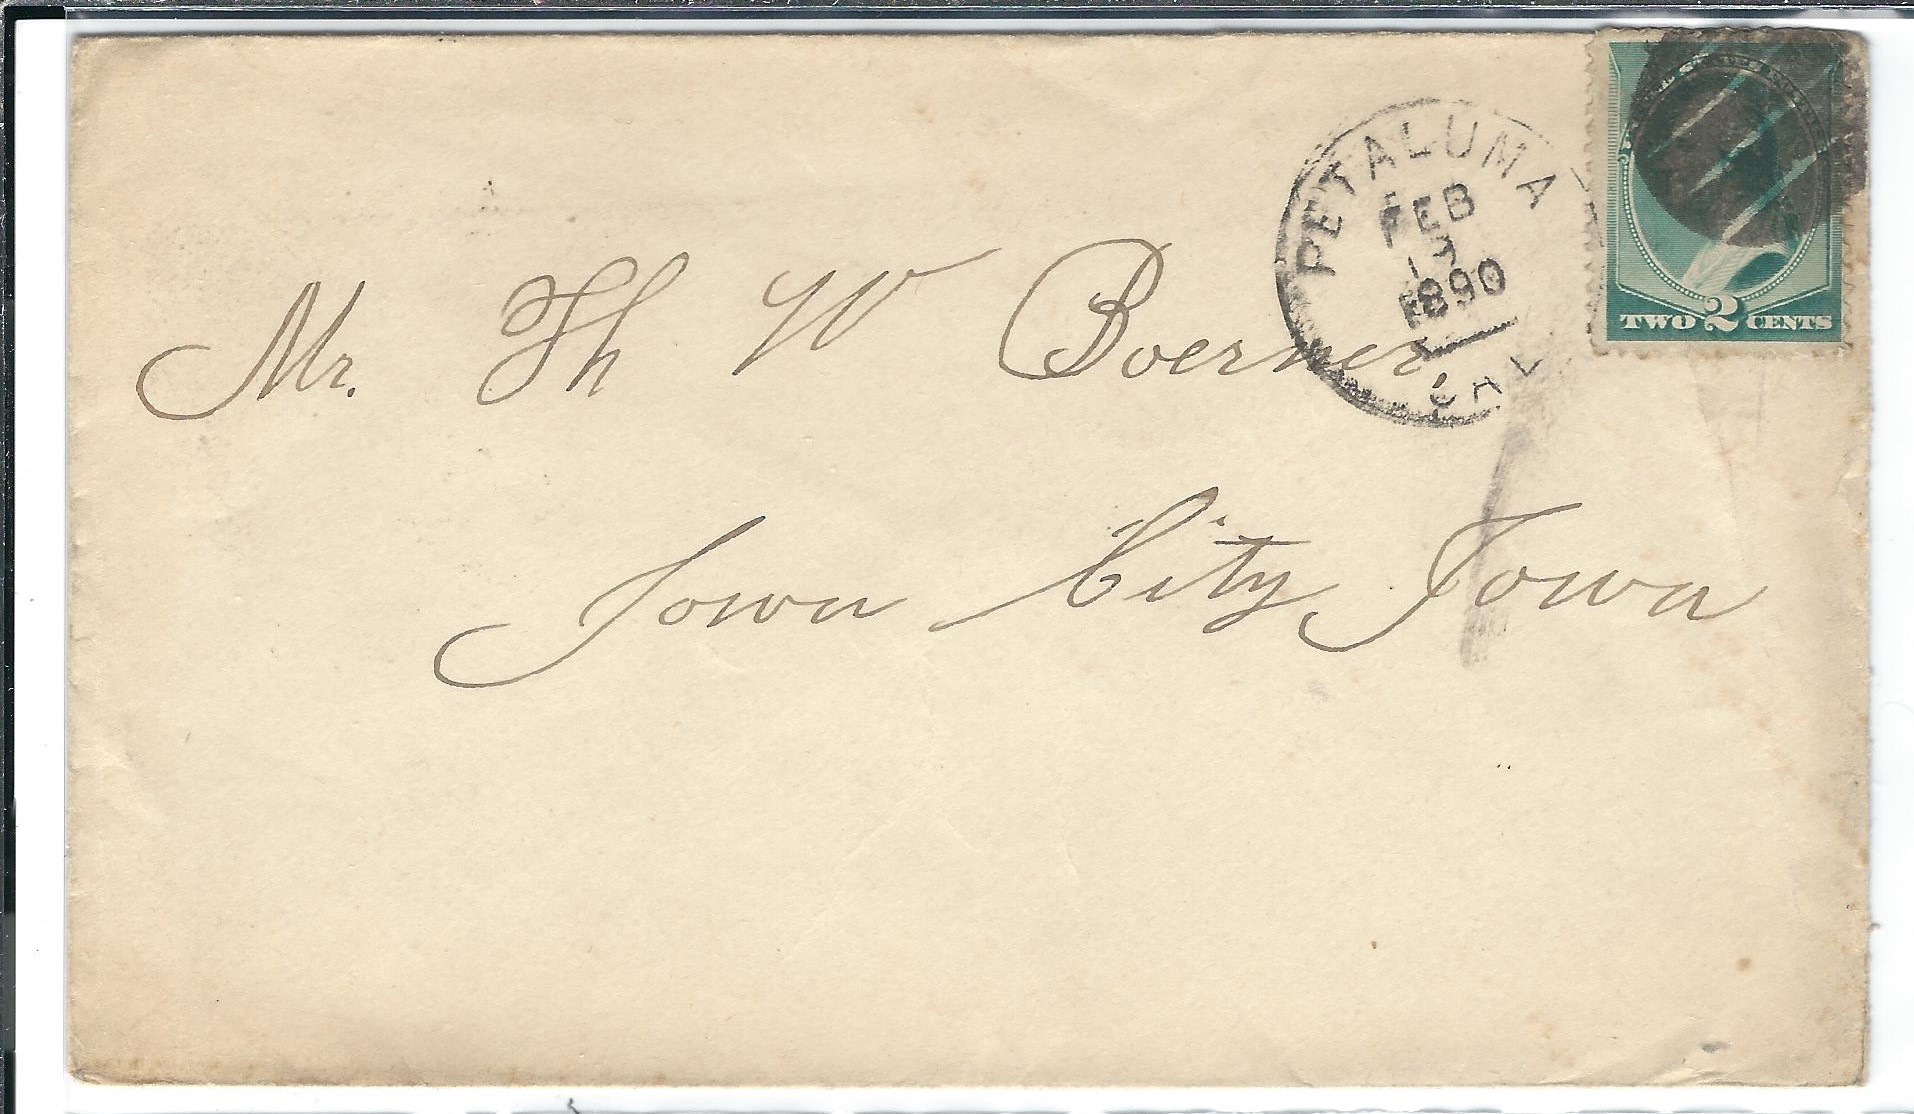 PETALUMA
FEB
1890
CAL
TWO 2 CENTS
Mr. Th W Boerner,
Iowa City Iowa